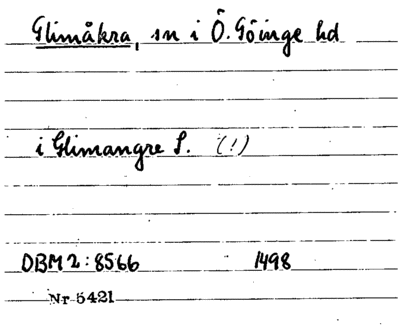 Glimåkra, sn i Ö. Göinge hd
i Glimangre S. (!)
DBM 2: 8566 1498
Nr 5421